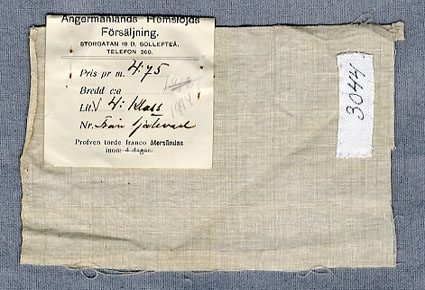 Ångermanlands Hemslöjds
Försäljning.
STORGATAN 18 D, SOLLEFTEÅ,
TELEFON 260.
Pris pr m. 4:75
Bredd c:a
Litt. 4: Klass
Nr. Från
Profven torde franco återsändas
inom 4 dagar.
3044